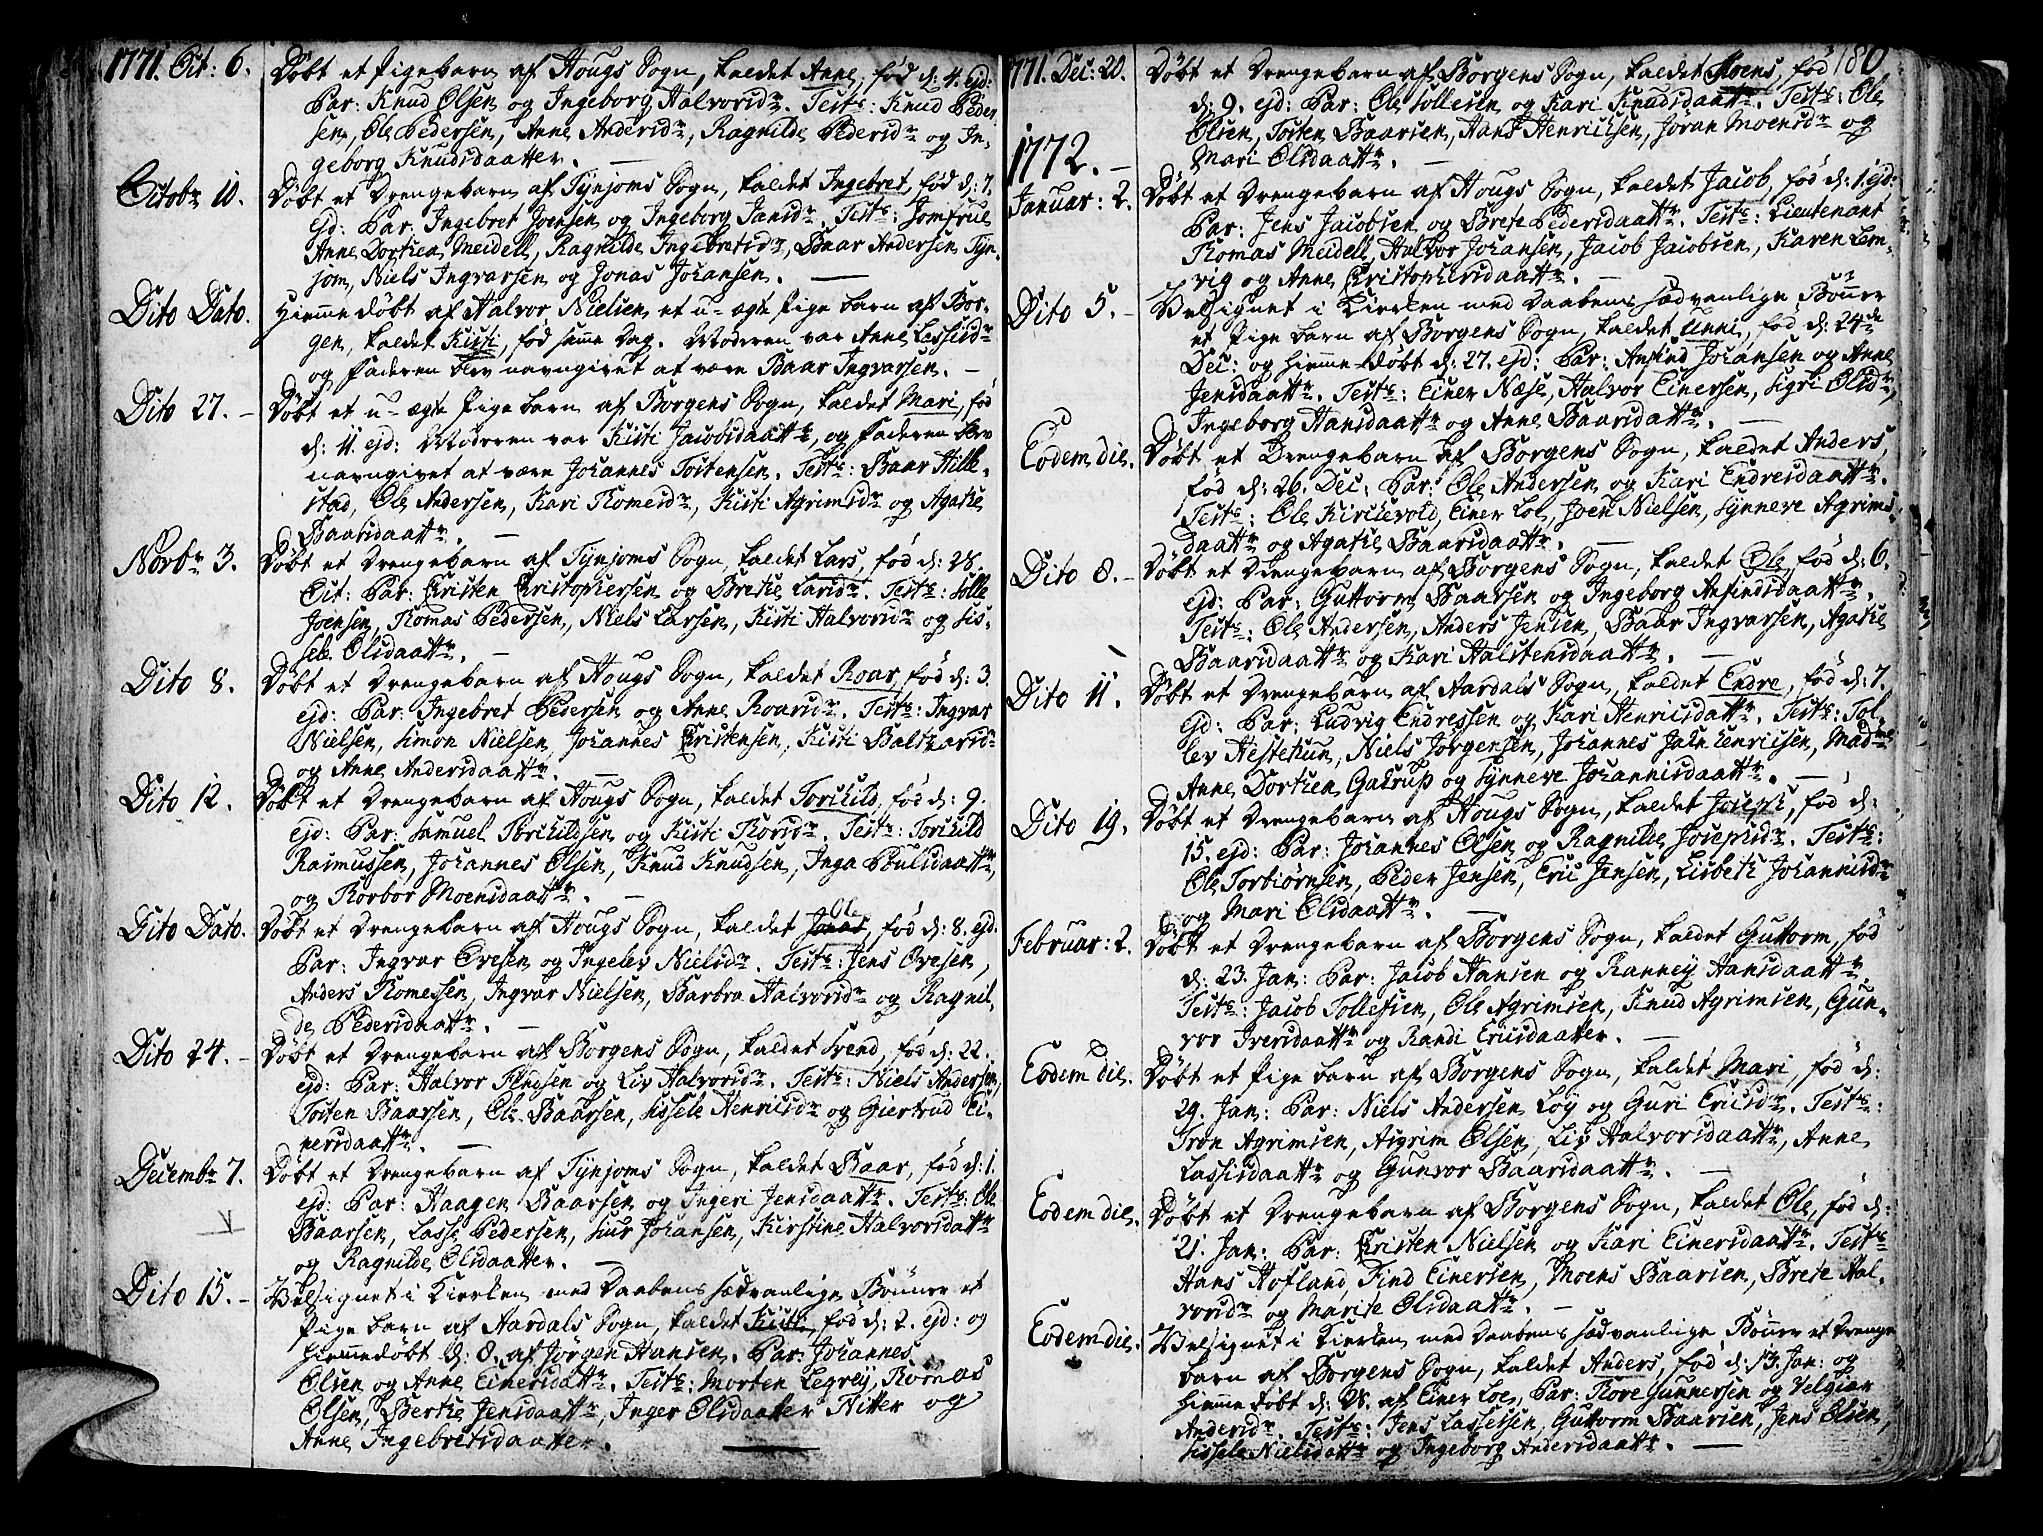 1771. Oct: 6. Döbt et Pigebarn af Hougs Sogn, kaldet Anne, fød d: 4. ejd:
Par: Knud Olsen og Ingeborg Halvorsdr. Tests: Knud Peder-
sen, Ole Pedersen, Anne Andersdr, Ragnilde Pedersdr og In-
geborg Knudsdaatter. —
Octobr 10. Döbt et Drengebarn af Tynjoms Sogn, kaldet Ingebret, fød d: 7.
ejd: Par: Ingebret Joensen og Ingeborg Jansdr. Tests: Jomfrue
Anne Dorthea Meidell, Ragnilde Ingebretsdr, Baar Andersen Tyn-
jom, Niels Ingvarsen og Jonas Johansen. —
Dito Dato. Hiemmedöbt af Halvor Nielsen et u-ægte Pige barn af Bor-
gen, kaldet Kisti, fød samme Dag. Moderen var Anne Lassisdr
og Faderen blev navngivet at være Baar Ingvarsen. —
Dito 27. — Döbt et u-ægte Pige barn af Borgens Sogn, kaldet Mari, fød
d: 11. ejd: Moderen var Kisti Jacobsdaattr, og Faderen blev
navngivet at være Johannes Tostensen. Tests: Baar Hille-
stad, Ole Andersen, Kari Thomesdr, Kisti Agrimsdr og Agathe
Baarsdaattr. —
Novbr 3. Döbt et Drengebarn af Tynjoms Sogn, kaldet Lars, fød d: 28.
Oct: Par: Christen Christophersen og Brethe Larsdr. Tests: Solle
Joensen, Thomas Pedersen, Niels Larsen, Kisti Halvorsdr og Sis-
sele Olsdaattr. —
Dito 8. Döbt et Drengebarn af Hougs Sogn, kaldet Roar, fød d: 3.
ejd: Par: Ingebret Pedersen og Anne Roarsdr. Tests: Ingvar
Nielsen, Simon Nielsen, Johannes Christensen, Kisti Baltzarsdr
og Anne Andersdaattr. —
Dito 12. Döbt et Drengebarn af Hougs Sogn, kaldet Torchild, fød d: 9.
ejd: Par: Samuel Torchildsen og Kisti Thorsdr. Tests: Torchild
Rasmussen, Johannes Olsen, Knud Knudsen, Inga Poulsdaattr,
og Thorbor Moensdaattr. —
Dito Dato. Döbt et Drengebarn af Hougs Sogn, kaldet Jonas Ole, fød d: 8. ejd.
Par: Ingvar Ovesen og Ingelev Nielsdr. Tests: Jens Ovesen,
Anders Thomessen, Ingvar Nielsen, Barbra Halvorsdr og Ragnil-
de Pedersdaattr. —
Dito 24. — Döbt et Drengebarn af Borgens Sogn, kaldet Svend, fød d: 22.
ejd: Par: Halvor Svendsen og Liv Halvorsdr. Tests: Niels Andersen,
Tosten Baarsen, Ole Baarsen, Sissele Henricsdr og Giertrud Ei-
nersdaattr. —
Decembr 7. Döbt et Drengebarn af Tynjoms Sogn, kaldet Baar, fød d: 1.
ejd: Par: Haagen Baarsen og Ingeri Jensdaattr. Tests: Ole
Baarsen, Lasse Pedersen, Siur Johansen, Kirstine Halvorsdattr
og Ragnilde Olsdaatter. —
Dito 15. — Velsignet i Kierken med Daabens sædvanlige Bönner et
Pige barn af Aardals Sogn, kaldet Kisti, fød d: 2. ejd: og
hiemmedöbt d: 8. af Jörgen Hansen. Par: Johannes
Olsen og Anne Einersdattr. Tests: Morten Legrey, Thomas
Olsen, Berthe Jensdaattr, Inger Olsdaatter Nitter og
Anne Ingebretsdaatter.
180
1771. Dec: 20. Döbt et Drengebarn af Borgens Sogn, kaldet Moens, fød
d: 9. ejd: Par: Ole Sollesen og Kari Knudsdaattr. Tests: Ole
Olsen, Tosten Baarsen, Hans Henricksen, Jöran Moensdr og
Mari Olsdaattr. —
1772. —
Januar: 2. Döbt et Drengebarn af Hougs Sogn, kaldet Jacob, fød d: 1. ejd:
Par: Jens Jacobsen og Brete Pedersdaattr. Tests: Lieutenant
Thomas Meidell, Halvor Johansen, Jacob Jacobsen, Karen Lem-
vig og Anne Christophersdaattr. —
Dito 5. — Velsignet i Kierken med Daabens sædvanlige Bönner
et Pige barn af Borgens Sogn, kaldet Anne, fød d: 24de
Dec: og hiemme-döbt d: 27. ejd: Par: Anfind Johansen og Anne
Jensdaattr. Tests: Einer Næse, Halvor Einersen, Sigri Olsdr,
Ingeborg Hansdaattr og Anne Baarsdattr. —
Eodem die. Döbt et Drengebarn af Borgens Sogn, kaldet Anders,
fød d: 26. Dec: Par: Ole Andersen og Kari Endresdaattr.
Tests: Ole Kirchevold, Einer Loe, Joen Nielsen, Synneve Agrims-
daattr og Agathe Baarsdaattr. —
Dito 8. — Döbt et Drengebarn af Borgens Sogn, kaldet Ole, fød d: 6.
ejd: Par: Guttorm Baarsen og Ingeborg Anfindsdaattr.
Tests: Ole Andersen, Anders Jensen, Baar Ingvarsen, Agathe
Baarsdaattr og Kari Halstensdaattr. —
Dito 11. Döbt et Drengebarn af Aardals Sogn, kaldet Endre, fød d: 7.
ejd: Par: Ludvig Endressen og Kari Henricsdattr. Tests: Tol-
lev Hestehun, Niels Jörgensen, Johannes Jahn Henricsen, Madme
Anne Dorthea Gahrup og Synneve Johannisdaattr. —
Dito 19. Döbt et Drengebarn af Hougs Sogn, kaldet Joseph, fød d:
15. ejd: Par: Johannes Olsen og Ragnilde Josephsdr. Tests:
Ole Torbiörnsen, Peder Jensen, Eric Jensen, Lisbeth Johannisdr
og Mari Olsdaattr. —
Februar: 2. Döbt et Drengebarn af Borgens Sogn, kaldet Guttorm, fød
d: 23. Jan: Par: Jacob Hansen og Ranney Hansdaattr.
Tests: Jacob Tollefsen, Ole Agrimsen, Knud Agrimsen, Gun-
vor Iversdaattr og Randi Ericsdaatter. —
Eodem die. Döbt et Pige barn af Borgens Sogn, kaldet Mari, fød d:
29. Jan: Par: Niels Andersen Löy og Guri Ericsdr. Tests:
Tron Agrimsen, Asgrim Olsen, Liv Halvorsdaattr, Anne
Lassisdaattr og Gunvor Baarsdaattr. —
Eodem die. Döbt et Drengebarn af Borgens Sogn, kaldet Ole, fød d:
21. Jan: Par: Christen Nielsen og Kari Einersdaattr. Tests
Hans Hofland, Find Einersen, Moens Baarsen, Brete Hal-
vorsdr og Marite Olsdaattr. —
Eodem die. Velsignet i Kierken med Daabens sædvanlige Bönner et Drenge
barn af Borgens Sogn, kaldet Anders, fød d: 13. Jan: og
hiemme döbt d: 28. af Einer Loe, Par: Thore Gunnersen og Velgiær
Andersdr. Tests: Jens Lassesen, Guttorm Baarsen, Jens Olsen,
Sissele Nielsdattr og Ingeborg Andersdaattr. —